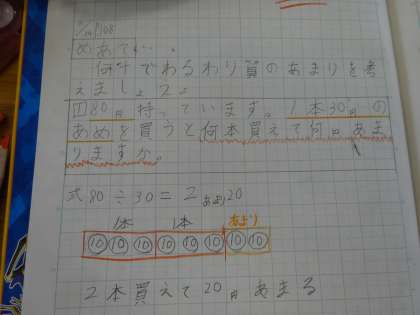 めあて
何十でわるわり算のあまりを考
えましょう。
1 80円持っています。1本30円の
あめを買うと何本買えて何円あま
りますか。
式 80÷30=2あまり20
1本 1本 あまり
10 10 10 10 10 10 10 10
2本買えて20円あまる